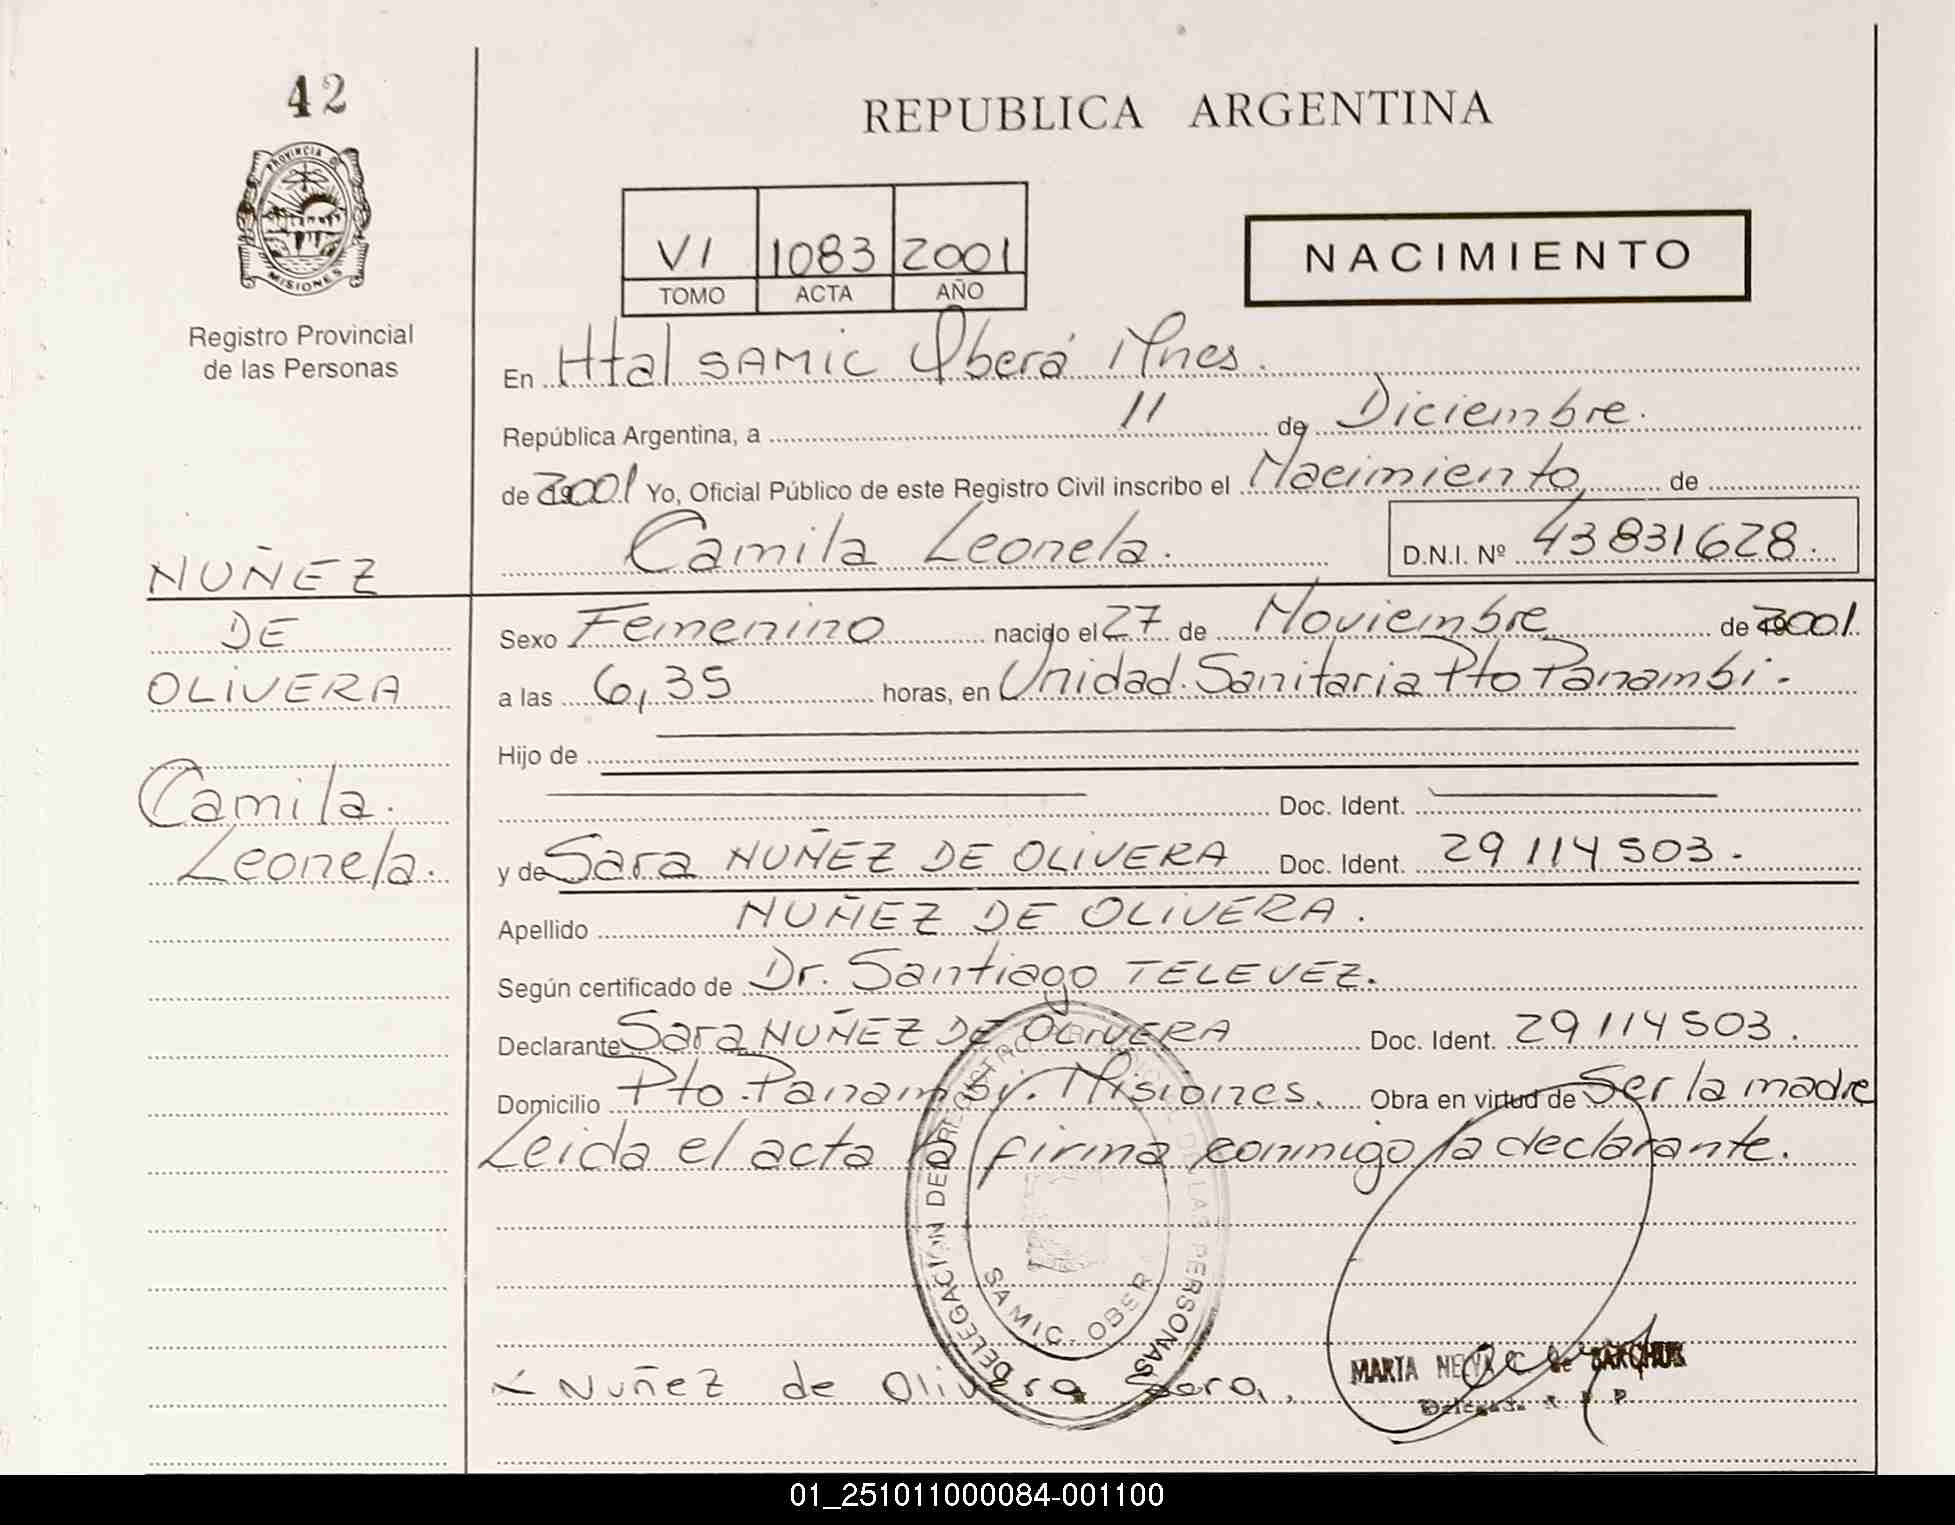 42
PROVINCIA DE
MISIONES
Registro Provincial
de las Personas
REPUBLICA ARGENTINA
VI 1083 2001
TOMO ACTA AÑO
NACIMIENTO
En Htal SAMIC Oberá Mnes.
República Argentina, a 11 de Diciembre.
de 2001 Yo, Oficial Público de este Registro Civil inscribo el Nacimiento de
Camila Leonela. D.N.I. Nº 43831628.
NUÑEZ
DE
OLIVERA
Camila.
Leonela.
Sexo Femenino nacido el 27 de Noviembre de 2001.
a las 6,35 horas, en Unidad.Sanitaria Pto Panambi.
Hijo de
Doc. Ident.
y de Sara NUÑEZ DE OLIVERA Doc. Ident. 29114503.
Apellido NUÑEZ DE OLIVERA.
Según certificado de Dr. Santiago TELEVEZ.
Declarante Sara NUÑEZ DE OLIVERA Doc. Ident. 29114503.
Domicilio Pto.Panambi. Misiones. Obra en virtud de Ser la madre
Leida el acta la firma conmigo la declarante.
DELEGACION DE REGISTRO DE LAS PERSONAS
SAMIC. OBERA
Nuñez de Olivera Sara.
MARTA
Delegada R. P. P.
01_251011000084-001100